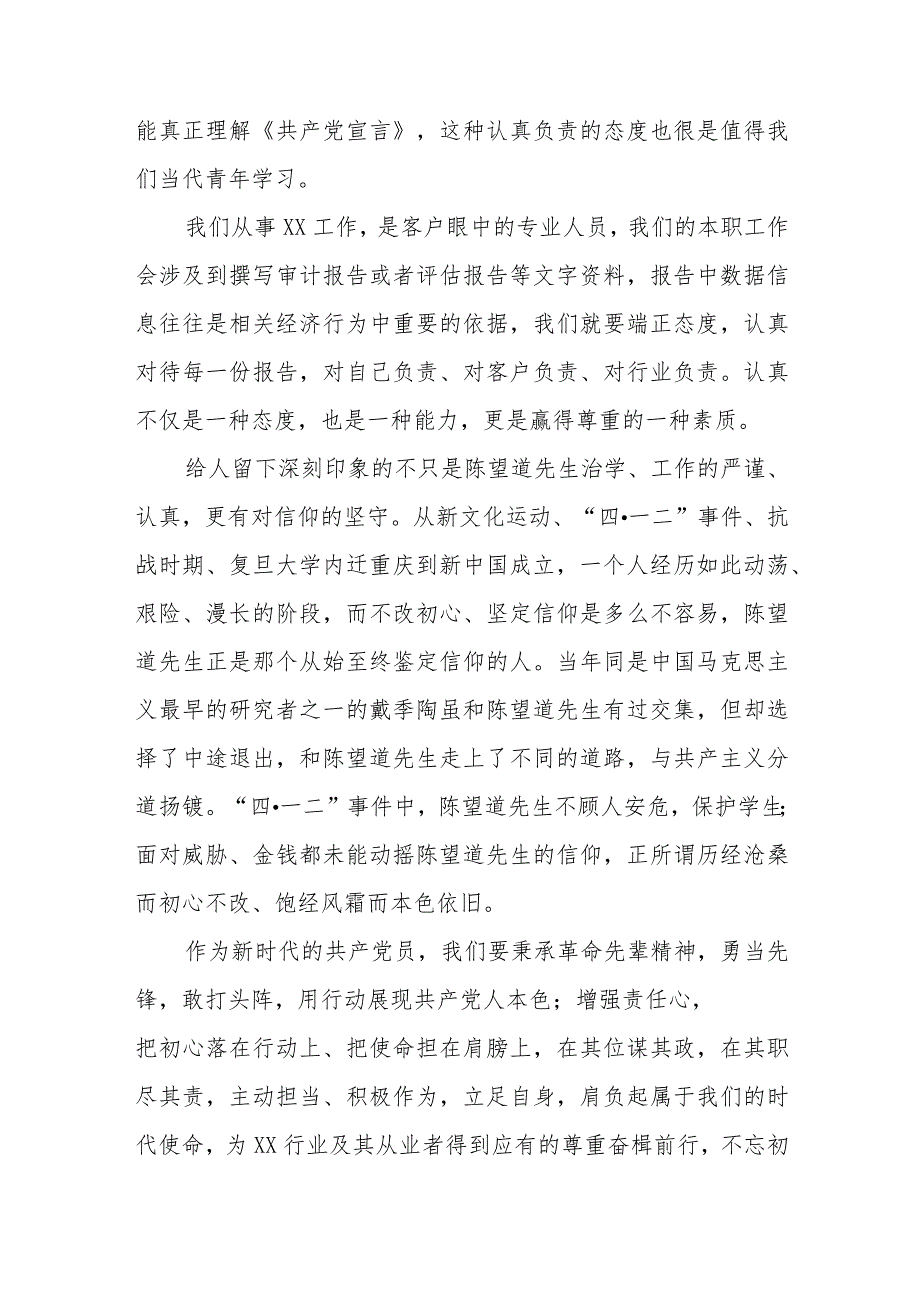 能真正理解《共产党宣言》，这种认真负责的态度也很是值得我
们当代青年学习。
我们从事XX工作，是客户眼中的专业人员，我们的本职工作
会涉及到撰写审计报告或者评估报告等文字资料，报告中数据信
息往往是相关经济行为中重要的依据，我们就要端正态度，认真
对待每一份报告，对自己负责、对客户负责、对行业负责。认真
不仅是一种态度，也是一种能力，更是赢得尊重的一种素质。
给人留下深刻印象的不只是陈望道先生治学、工作的严谨、
认真，更有对信仰的坚守。从新文化运动、“四•一二”事件、抗
战时期、复旦大学内迁重庆到新中国成立，一个人经历如此动荡、
艰险、漫长的阶段，而不改初心、坚定信仰是多么不容易，陈望
道先生正是那个从始至终鉴定信仰的人。当年同是中国马克思主
义最早的研究者之一的戴季陶虽和陈望道先生有过交集，但却选
择了中途退出，和陈望道先生走上了不同的道路，与共产主义分
道扬镀。“四•一二”事件中，陈望道先生不顾人安危，保护学生；
面对威胁、金钱都未能动摇陈望道先生的信仰，正所谓历经沧桑
而初心不改、饱经风霜而本色依旧。
作为新时代的共产党员，我们要秉承革命先辈精神，勇当先
锋，敢打头阵，用行动展现共产党人本色；增强责任心，
把初心落在行动上、把使命担在肩膀上，在其位谋其政，在其职
尽其责，主动担当、积极作为，立足自身，肩负起属于我们的时
代使命，为XX行业及其从业者得到应有的尊重奋楫前行，不忘初